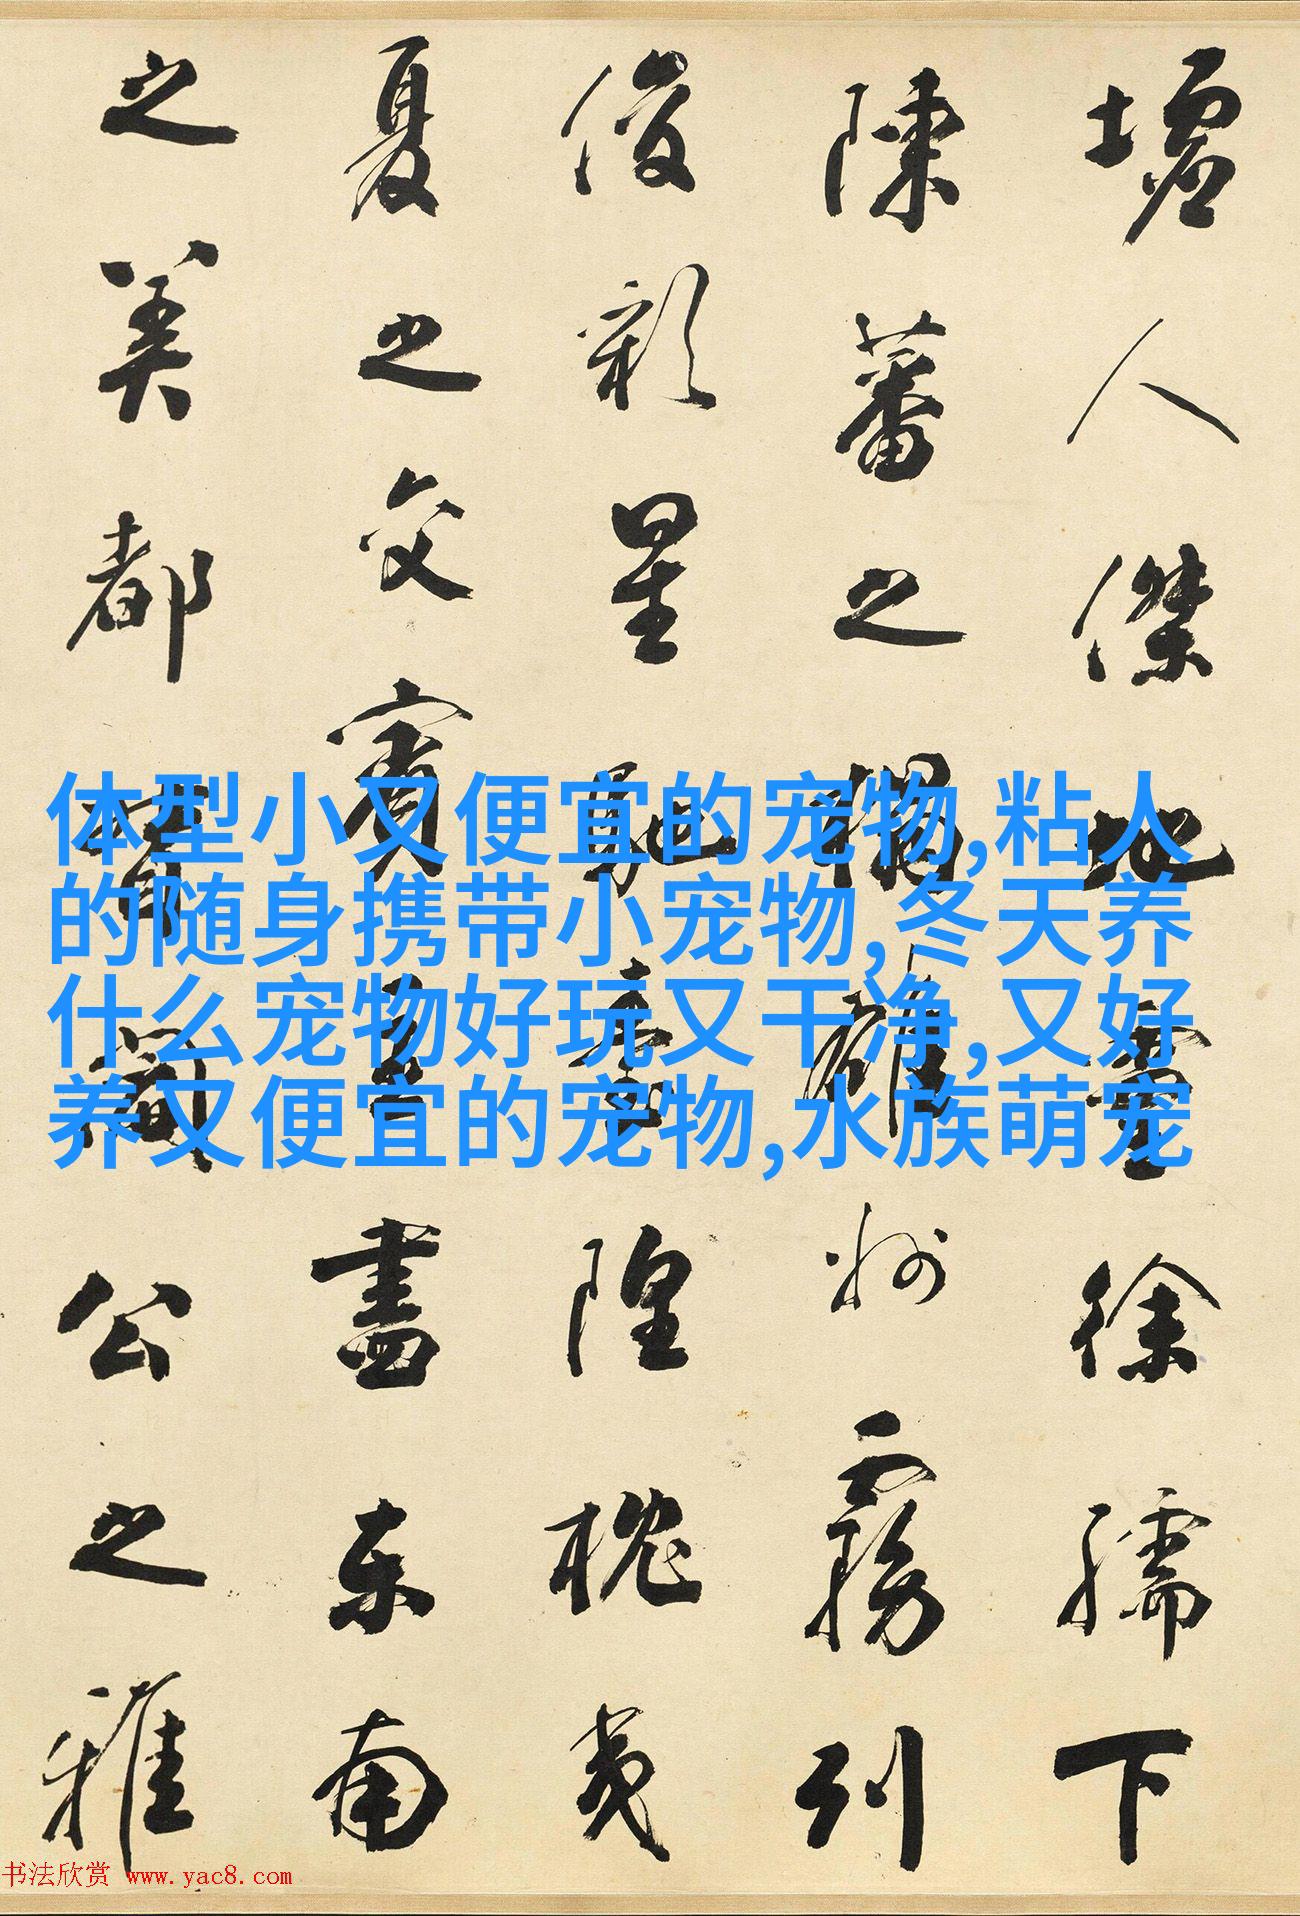 墟人傑地靈徐孺下
陳蕃之榻雄州霧列
俊彩星馳臺隍枕夷
夏之交賓主盡東南
之美都督閻公之雅
体型小又便宜的宠物,粘人
的随身携带小宠物,冬天养
什么宠物好玩又干净,又好
养又便宜的宠物,水族萌宠
书法欣赏 www.yac8.com